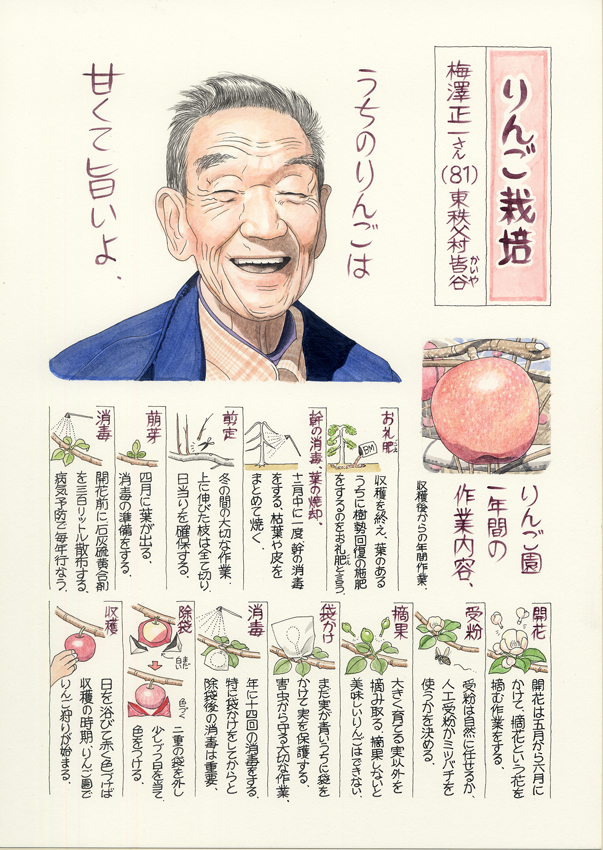 りんご栽培
梅澤正一さん(81)東秩父村皆谷
かいや
うちのりんごは
甘くて旨いよ、
りんご園
一年間の
作業内容、
収穫後からの年間作業、
お礼肥
こえ
BM
収穫を終え、葉のある
うちに樹勢回復の施肥
をするのをお礼肥と言う、
こえ
幹の消毒、葉の焼却、
十二月中に一度、幹の消毒
をする、枯葉や皮を
まとめて焼く、
剪定
冬の間の大切な作業、
上に伸びた枝は全て切り
日当りを確保する、
萌芽
四月に葉が出る、
消毒の準備をする、
消毒
開花前に石灰硫黄合剤
を三百リットル散布する、
病気予防で毎年行なう、
開花
開花は五月から六月に
かけて、摘花という花を
摘む作業をする、
受粉
受粉は自然に任せるか、
人工受粉かミツバチを
使うかを決める、
摘果
大きく育てる実以外を
摘み取る、摘果しないと
美味しいりんごはできない、
袋かけ
まだ実が青いうちに袋を
かけて実を保護する、
害虫から守る大切な作業、
消毒
年に十四回の消毒をする、
特に袋かけをしてからと
除袋後の消毒は重要、
除袋
まだ白い
色づく
二重の袋を外し
少しづつ日を当て
色をつける、
収穫
日を浴びて赤く色づけば
収穫の時期、りんご園で
りんご狩りが始まる、